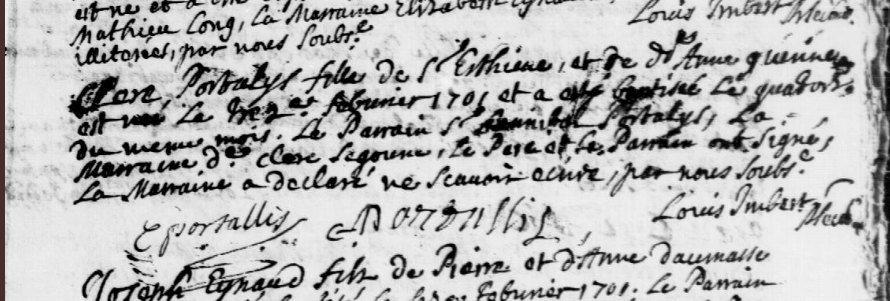 est né et a été
Mathieu Long, La Marraine Elizabeth Eynaud
illiterés, par nous Soubs.é Louis Imbert
Clere Portalys fille de Sr Esthiene, et de de Anne
est née Le treze. febvrier 1701 et a esté baptisée Le quators.
du meme mois. Le Parrain Sr hannibal Portalys, La
Marraine de Clere Segoune, Le Pere et Le Parrain ont Signé,
La Marraine a declaré ne Scavoir ecrire, par nous Soubs.é
EPortallis Portallis Louis Imbert
Joseph Eynaud fils de Pierre et d'Anne daumasse
febvrier 1701. Le Parrain